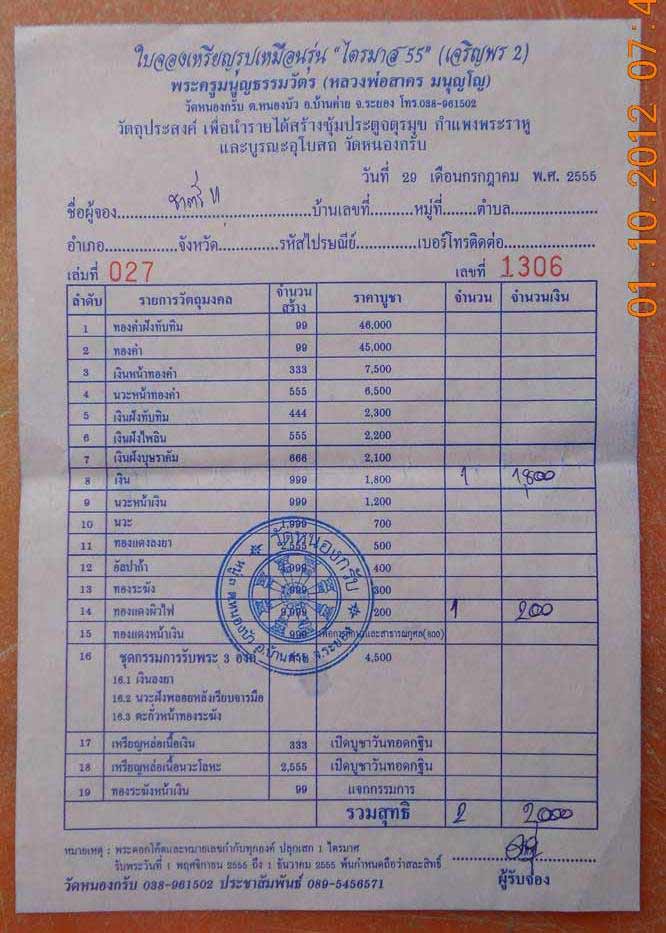 ใบจองเหรียญรูปเหมือนรุ่น "ไตรมาส 55" (เจริญพร 2)
พระครูมนูญธรรมวัตร (หลวงพ่อสาคร มนุญโญ)
วัดหนองกรับ ต.หนองบัว อ.บ้านค่าย จ.ระยอง โทร.038-961502
วัตถุประสงค์ เพื่อนำรายได้สร้างซุ้มประตูจตุรมุข กำแพงพระราหู
และบูรณะอุโบสถ วัดหนองกรับ
วันที่ 29 เดือนกรกฎาคม พ.ศ. 2555
ชื่อผู้จอง..........บ้านเลขที่..........หมู่ที่.......ตำบล..........
อำเภอ..........จังหวัด..........รหัสไปรษณีย์..........เบอร์โทรติดต่อ..........
เล่มที่ 027 เลขที่ 1306
ลำดับ รายการวัตถุมงคล จำนวนสร้าง ราคาบูชา จำนวน จำนวนเงิน
1 ทองคำฝังทับทิม 99 46,000
2 ทองคำ 99 45,000
3 เงินหน้าทองคำ 333 7,500
4 นวะหน้าทองคำ 555 6,500
5 เงินฝังทับทิม 444 2,300
6 เงินฝังไพลิน 555 2,200
7 เงินฝังบุษราคัม 666 2,100
8 เงิน 999 1,800 1 1,800
9 นวะหน้าเงิน 999 1,200
10 นวะ 1,999 700
11 ทองแดงลงยา 2,555 500
12 อัลปาก้า 400
13 ทองระฆัง 300
14 ทองแดงผิวไฟ 9,999 200 1 200
15 ทองแดงหน้าเงิน 999
16 ชุดกรรมการรับพระ 3 องค์ 4,500
16.1 เงินลงยา
16.2 นวะฝังพลอยหลังเรียบจารมือ
16.3 ตะกั่วหน้าทองระฆัง
17 เหรียญหล่อเนื้อเงิน 333 เปิดบูชาวันทอดกฐิน
18 เหรียญหล่อเนื้อนวะโลหะ 2,555 เปิดบูชาวันทอดกฐิน
19 ทองระฆังหน้าเงิน 99 แจกกรรมการ
รวมสุทธิ 2 2,000
หมายเหตุ : พระตอกโค๊ดและหมายเลขกำกับทุกองค์ ปลุกเสก 1 ไตรมาศ
รับพระวันที่ 1 พฤศจิกายน 2555 ถึง 1 ธันวาคม 2555 พ้นกำหนดถือว่าสละสิทธิ์
วัดหนองกรับ 038-961502 ประชาสัมพันธ์ 089-5456571
ผู้รับจอง
วัดหนองกรับ
01.10.2012 07:4